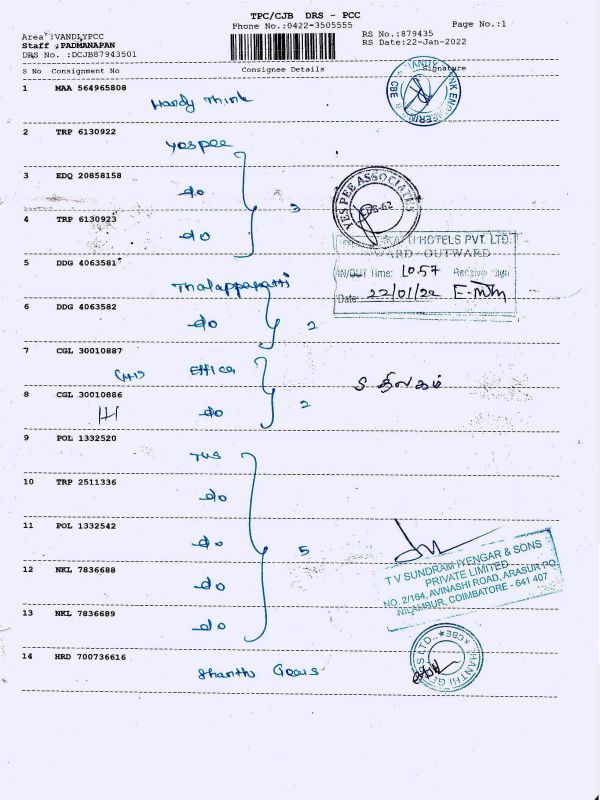 TPC/CJB DRS - PCC
Phone No.:0422-3505555
Page No.:1
Area :VANDLYPCC
RS No.:879435
Staff :PADMANAPAN
RS Date:22-Jan-2022
DRS No. :DCJB87943501
S No Consignment No Consignee Details Signature
1 MAA 564965808
Handy Think
2 TRP 6130922
Yes pee
3 EDQ 20858158
do
3
4 TRP 6130923
do
YES PEE ASSOCIATES
CBE-62
HOTELS PVT. LTD.
WARD - OUTWARD
IN/OUT Time: 10.57
Date: 22/01/22
5 DDG 4063581
Thalappakatti
6 DDG 4063582
do 2
7 CGL 30010887
Office
S திலகம்
8 CGL 30010886
do 2
9 POL 1332520
TVS
10 TRP 2511336
do
11 POL 1332542
do
5
12 NKL 7836688
do
13 NKL 7836689
do
T V SUNDRAM IYENGAR & SONS
PRIVATE LIMITED
NO. 2/164, AVINASHI ROAD, ARASUR PO
NILAMBUR, COIMBATORE - 641 407
14 HRD 700736616
Shanthi Gears